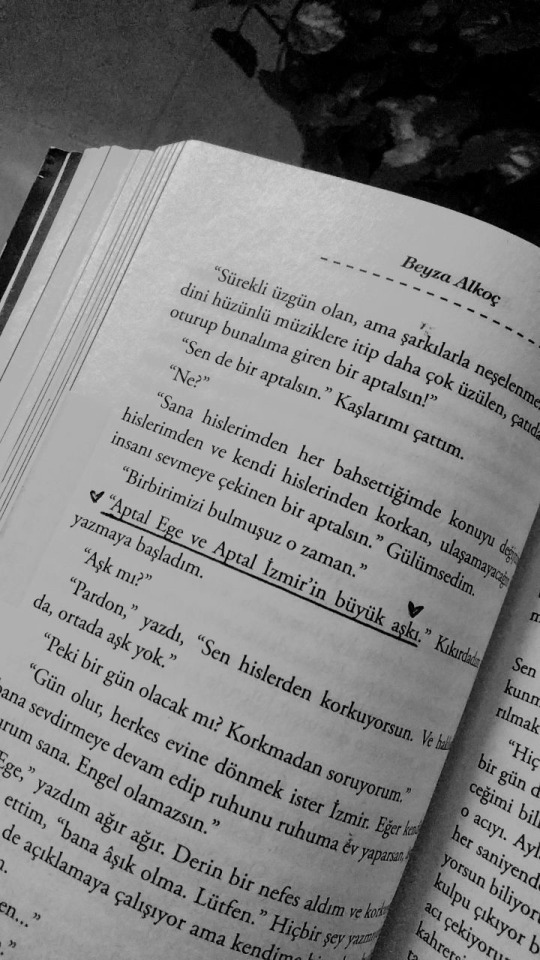 Beyza Alkoç
"Sürekli üzgün olan, ama şarkılarla neşelenme
dini hüzünlü müziklere itip daha çok üzülen, çatıda
oturup bunalıma giren bir aptalsın!"
"Sen de bir aptalsın." Kaşlarımı çattım.
"Ne?"
"Sana hislerimden her bahsettiğimde konuyu değiş
hislerimden ve kendi hislerinden korkan, ulaşamayacağı
insanı sevmeye çekinen bir aptalsın." Gülümsedim.
"Birbirimizi bulmuşuz o zaman."
"Aptal Ege ve Aptal İzmir'in büyük aşkı." Kıkırdadım
yazmaya başladım.
"Aşk mı?"
"Pardon," yazdı, "Sen hislerden korkuyorsun. Ve
da, ortada aşk yok."
"Peki bir gün olacak mı? Korkmadan soruyorum."
"Gün olur, herkes evine dönmek ister İzmir. Eğer
bana sevdirmeye devam edip ruhunu ruhuma ev yaparsan,
urum sana. Engel olamazsın."
Ege," yazdım ağır ağır. Derin bir nefes aldım ve
ettim, "bana âşık olma. Lütfen." Hiçbir şey
de açıklamaya çalışıyor ama kendime
m.
en..."
Sen
kunm
rılmak
"Hiç
bir gün d
ceğimi bil
o acıyı. Ayl
her saniyend
yorsun biliyor
kulpu çıkıyor b
acı çekiyoru
kahrets